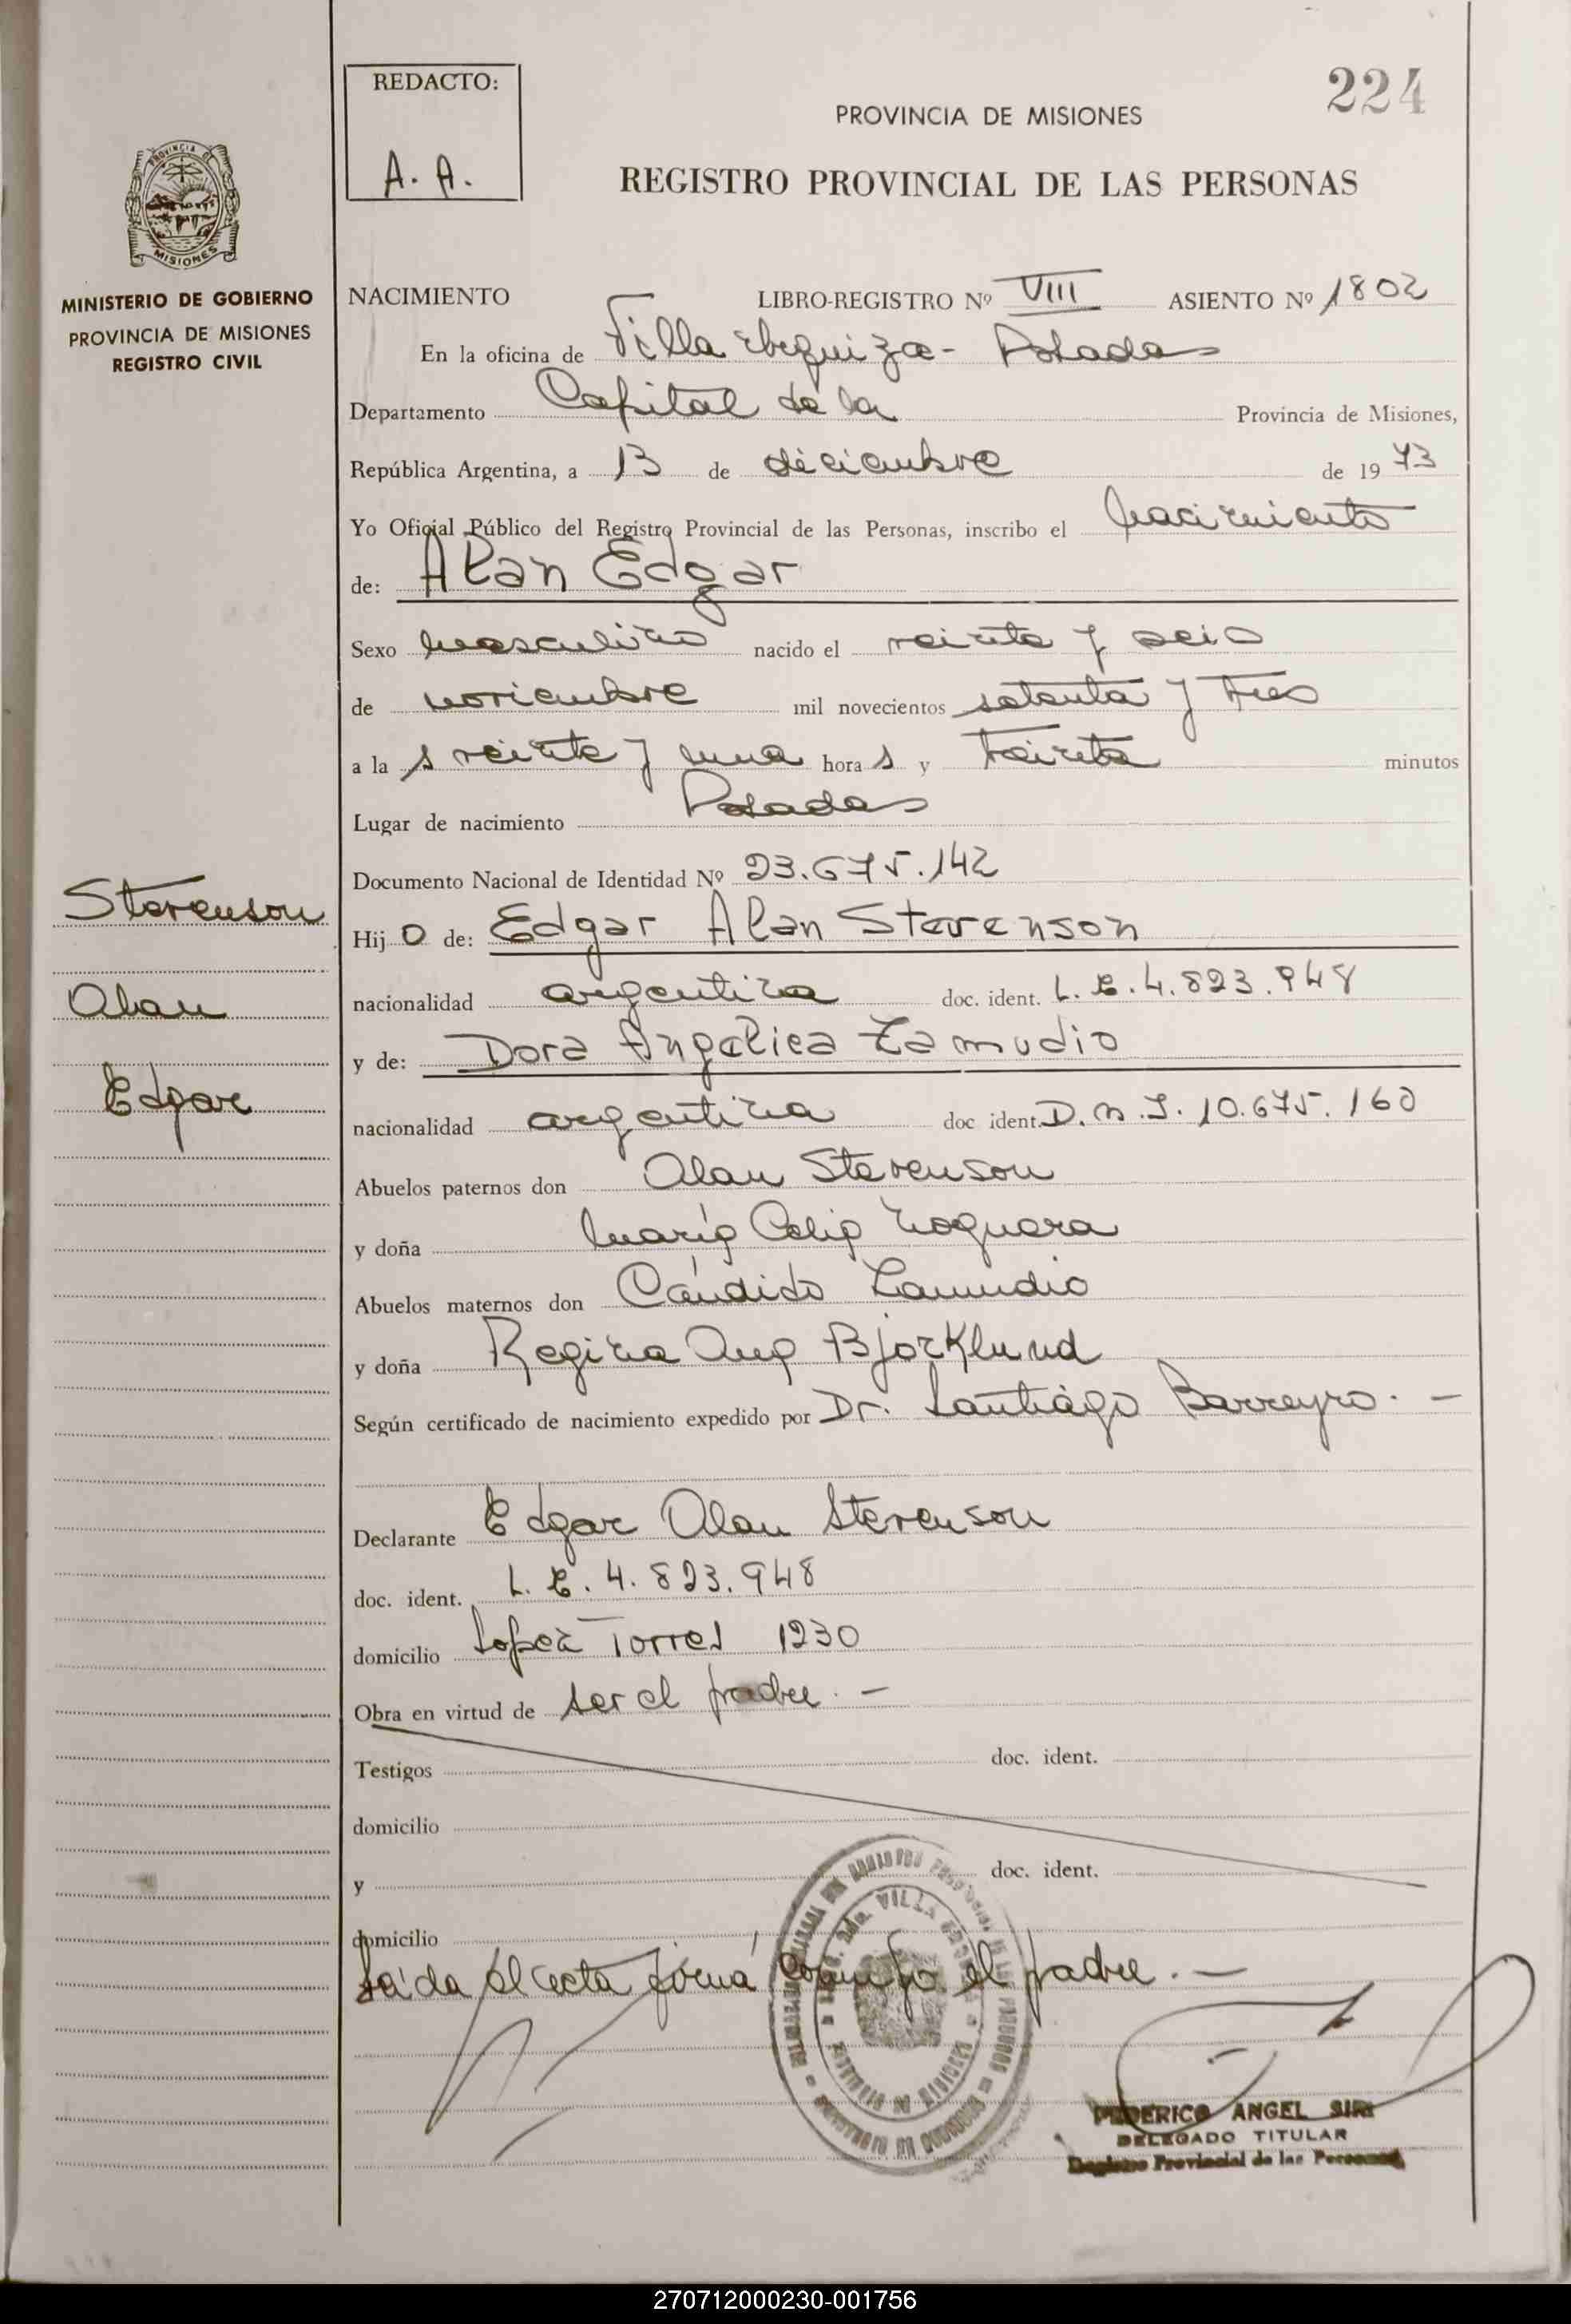 REDACTO:
A. A.
224
PROVINCIA DE MISIONES
REGISTRO PROVINCIAL DE LAS PERSONAS
PROVINCIA DE
MISIONES
MINISTERIO DE GOBIERNO
PROVINCIA DE MISIONES
REGISTRO CIVIL
NACIMIENTO LIBRO-REGISTRO Nº VIII ASIENTO Nº 1802
En la oficina de Villa Posadas
Departamento Capital de la Provincia de Misiones,
República Argentina, a 13 de diciembre de 1973
Yo Oficial Público del Registro Provincial de las Personas, inscribo el nacimiento
de: Alan Edgar
Sexo masculino nacido el veinte y seis
de noviembre mil novecientos setenta y tres
a la s veinte y una hora s y treinta minutos
Lugar de nacimiento Posadas
Documento Nacional de Identidad Nº 23.675.142
Stevenson
Alan
Edgar
Hij o de: Edgar Alan Stevenson
nacionalidad argentina doc. ident. L. E. 4.823.948
y de: Dora Angelica Zamudio
nacionalidad argentina doc ident. D. N. I. 10.675.160
Abuelos paternos don Alan Stevenson
y doña María Celia Noguera
Abuelos maternos don Cándido Zamudio
y doña Regina Ana Bjorklund
Según certificado de nacimiento expedido por Dr. Santiago Barreyro. -
Declarante Edgar Alan Stevenson
doc. ident. L. E. 4.823.948
domicilio Lopez Torres 1230
Obra en virtud de ser el padre. -
Testigos doc. ident.
domicilio
y doc. ident.
domicilio
Leída el acta firma conmigo el padre. -
FEDERICO ANGEL SIRI
DELEGADO TITULAR
Registro Provincial de las Personas
270712000230-001756